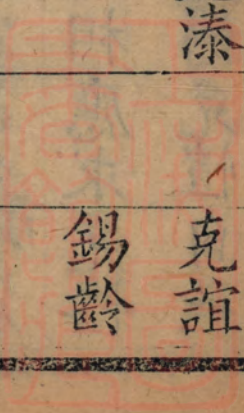 溱
克誼
錫齡